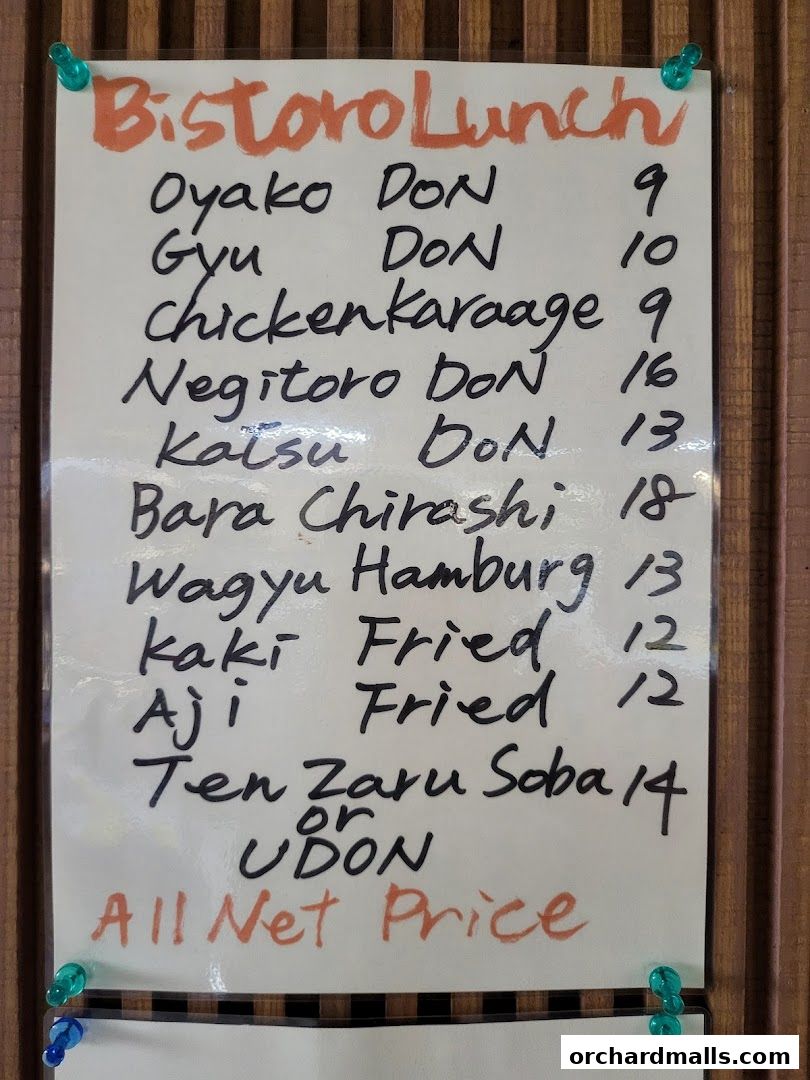 Bistoro Lunch
Oyako DON 9
Gyu DON 10
Chicken Karaage 9
Negitoro DON 16
Katsu DON 13
Bara Chirashi 18
Wagyu Hamburg 13
Kaki Fried 12
Aji Fried 12
Ten Zaru Soba 14
or
UDON
All Net Price
orchardmalls.com